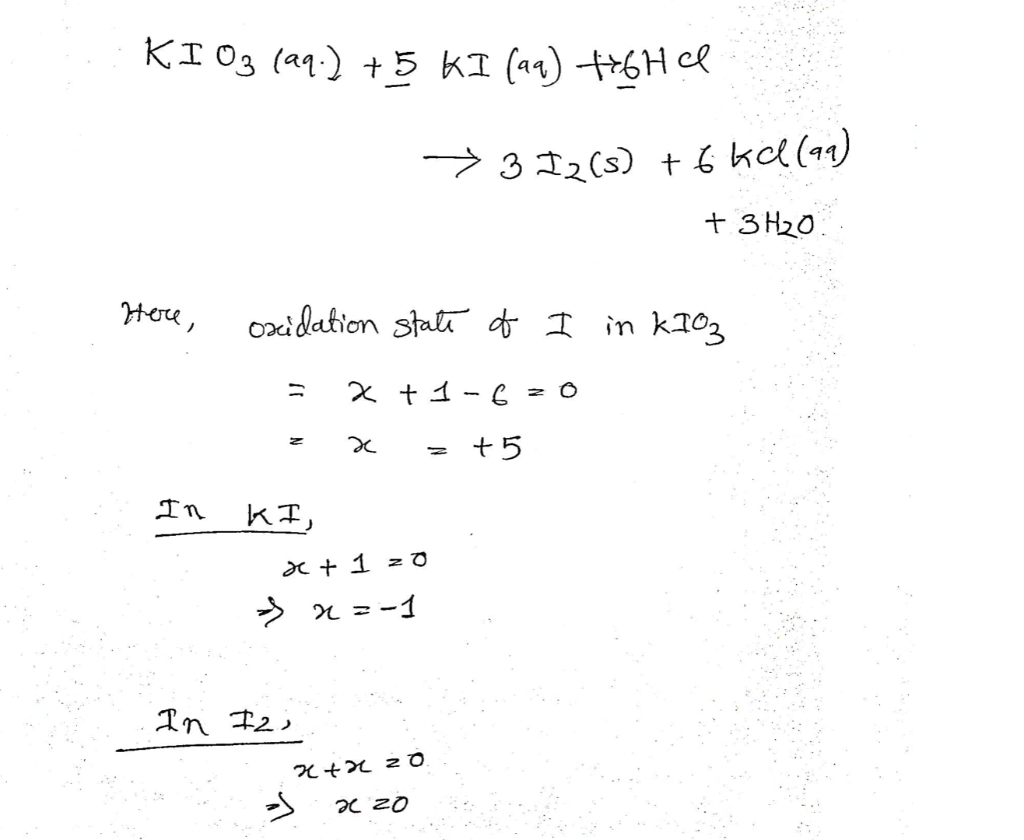 KIO3 (aq.) + 5 KI (aq) + 6HCl
→ 3 I2(s) + 6 KCl (aq)
+ 3H2O
Here, oxidation state of I in KIO3
= x + 1 - 6 = 0
= x = +5
In KI,
x + 1 = 0
⇒ x = -1
In I2,
x + x = 0
⇒ x = 0